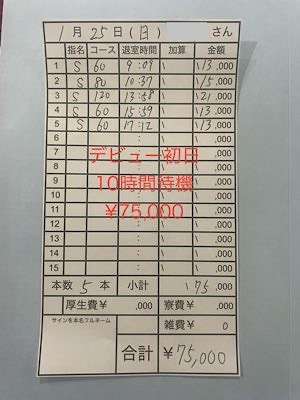 1月25日(日) さん
指名 コース 退室時間 加算 金額
1 S 60 9:09 \ \13,000
2 S 80 10:37 \ \15,000
3 S 120 13:58 \ \21,000
4 S 60 15:59 \ \13,000
5 S 60 17:12 \ \13,000
6 : \ \ ,000
7 : \ \ ,000
デビュー初日
8 : \ \ ,000
9 : \ \ ,000
10時間待機
10 : \ \ ,000
¥75,000
11 : \ \ ,000
12 : \ \ ,000
13 : \ \ ,000
14 : \ \ ,000
15 : \ \ ,000
本数 5 本 小計 \75,000
厚生費¥ ,000 寮費¥ ,000
サインを本名フルネーム 雑費¥ 0
合計 ¥75,000